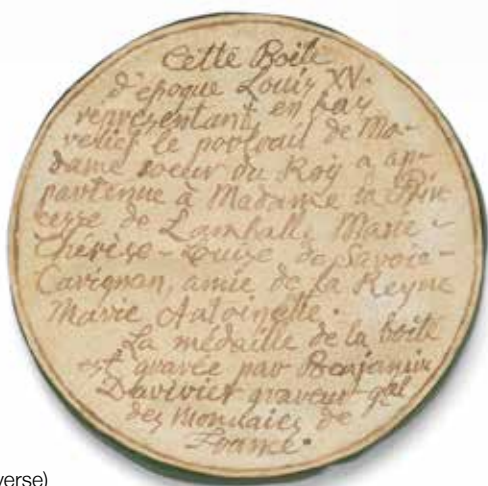 Cette Boite
d'époque Louis XV.
représentant en bas
relief le portrait de Ma-
dame soeur du Roy a ap-
partenue à Madame la Prin
cesse de Lamballe Marie-
Therese-Louise de Savoie-
Carignan, amie de la Reyne
Marie Antoinette.
La médaille de la boite
est gravée par Benjamin
Duvivier graveur gal
des Monnaies de
France.
verse)